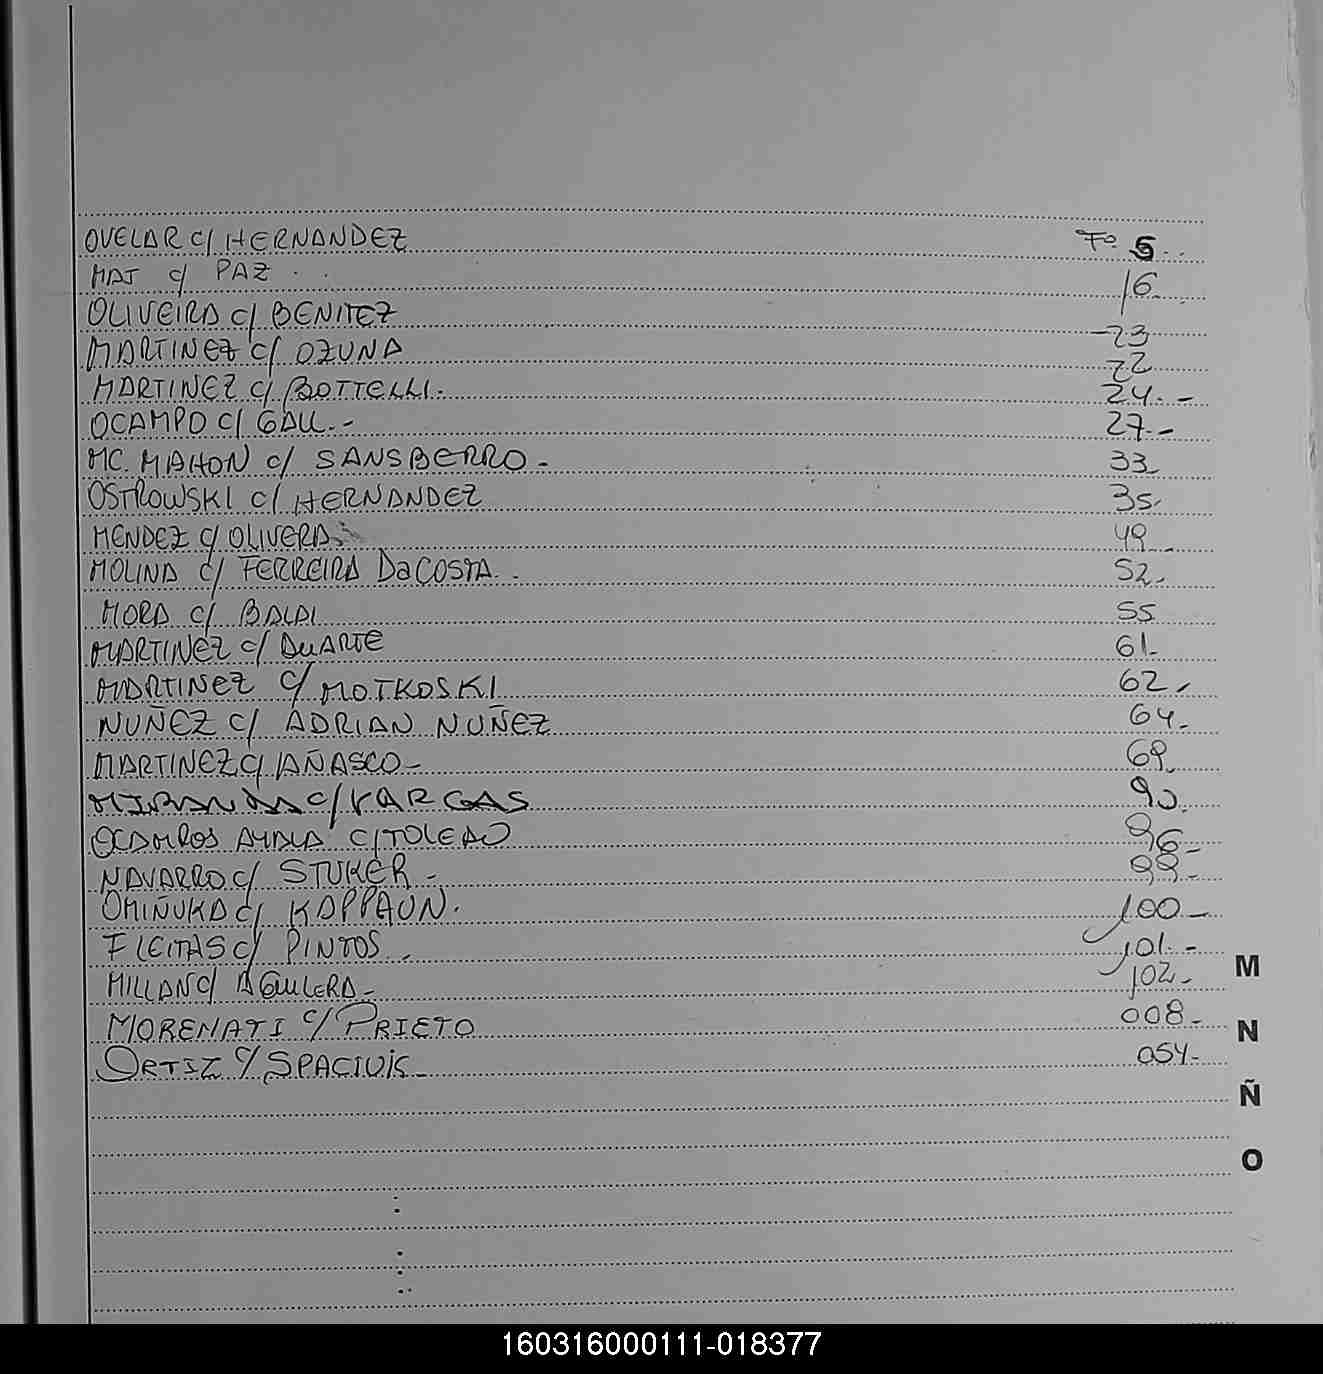 OVELAR C/ HERNANDEZ Fº 5
MAJ c/ PAZ 16
OLIVEIRA C/ BENITEZ 23
MARTINEZ C/ OZUNA 22
MARTINEZ C/ BOTTELLI. 24.-
OCAMPO C/ GALL.- 27.-
MC. MAHON C/ SANSBERRO - 33
OSTROWSKI C/ HERNANDEZ 35
MENDEZ C/ OLIVERA 49
MOLINA C/ FERREIRA DaCOSTA. 52.
MORA C/ BALDI 55
MARTINEZ C/ DUARTE 61-
MARTINEZ C/ MOTKOSKI 62
NUÑEZ C/ ADRIAN NUÑEZ 64-
MARTINEZ C/ AÑASCO- 69
MIRANDA C/ VARGAS 90
OCAMPOS AYALA C/ TOLEDO 96-
NAVARRO C/ STUKER- 99-
OMIÑUKA C/ KAPPAUN. 100-
FLEITAS C/ PINTOS 101-
MILLAN C/ AGUILERA- 102-
MORENATI C/ PRIETO 008-
ORTIZ C/ SPACIUK- 054-
M
N
Ñ
O
160316000111-018377